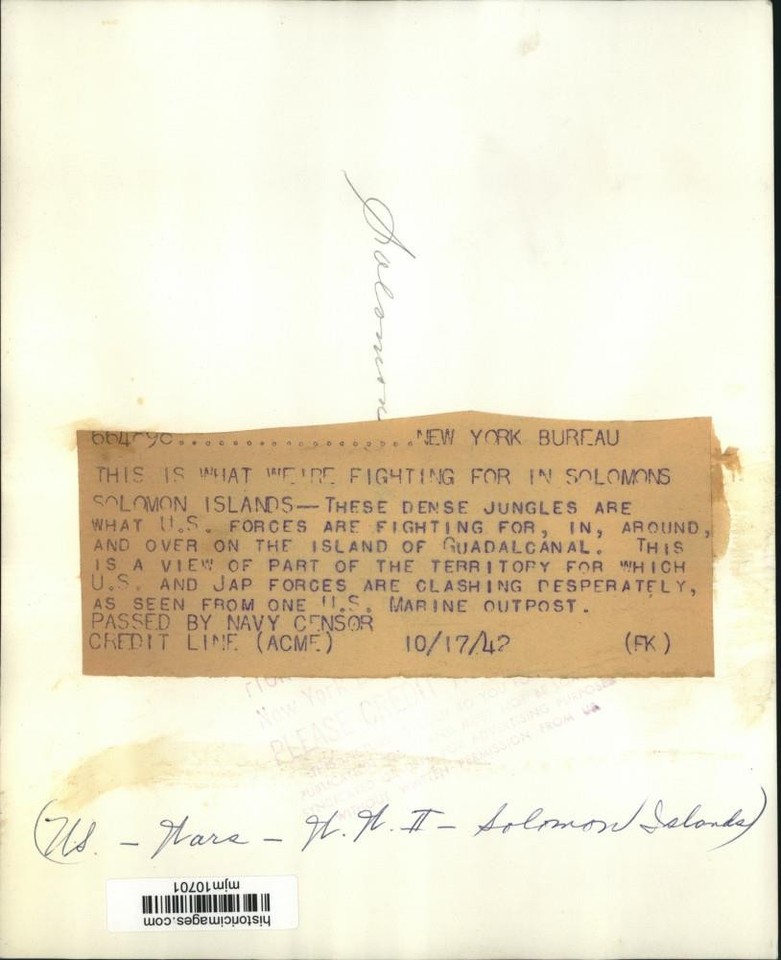 Solomon
664896....................NEW YORK BUREAU
THIS IS WHAT WE'RE FIGHTING FOR IN SOLOMONS
SOLOMON ISLANDS—THESE DENSE JUNGLES ARE
WHAT U.S. FORCES ARE FIGHTING FOR, IN, AROUND,
AND OVER ON THE ISLAND OF GUADALCANAL. THIS
IS A VIEW OF PART OF THE TERRITORY FOR WHICH
U.S. AND JAP FORCES ARE CLASHING DESPERATELY,
AS SEEN FROM ONE U.S. MARINE OUTPOST.
PASSED BY NAVY CENSOR
CREDIT LINE (ACME) 10/17/42 (FK)
New York
PLEASE CREDIT
ADVERTISING PURPOSES
WITHOUT WRITTEN PERMISSION FROM US
(US. — Wars — W.W. II — Solomon Islands)
mjm10701
historicimages.com